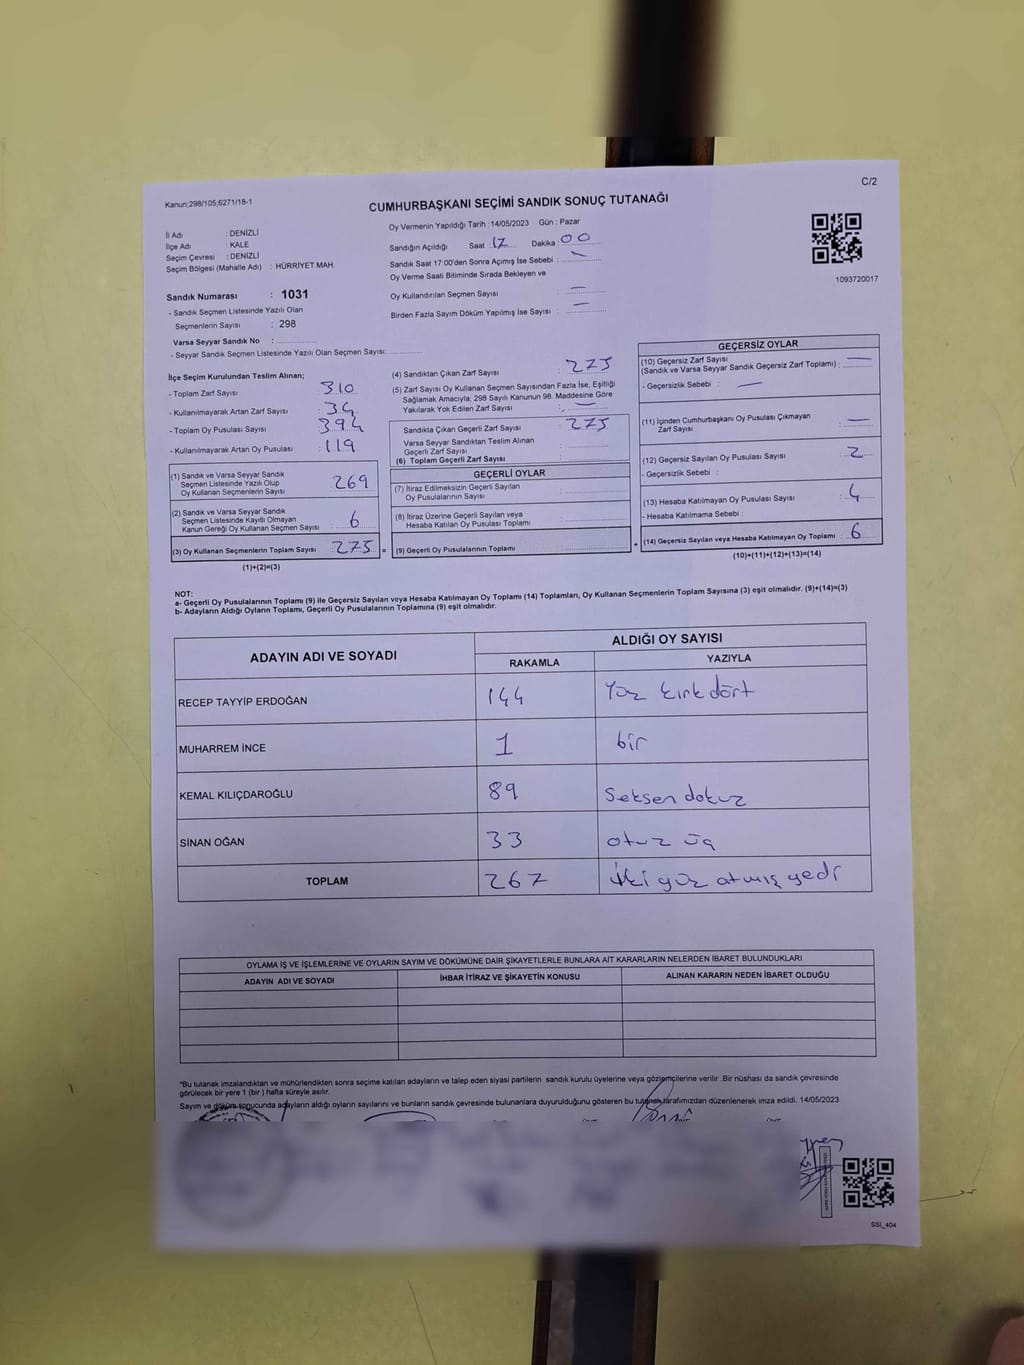 C/2
Kanun;298/105;6271/18-1
CUMHURBAŞKANI SEÇİMİ SANDIK SONUÇ TUTANAĞI
İl Adı : DENİZLİ
İlçe Adı : KALE
Seçim Çevresi : DENİZLİ
Seçim Bölgesi (Mahalle Adı) : HÜRRİYET MAH.
Sandık Numarası : 1031
- Sandık Seçmen Listesinde Yazılı Olan
Seçmenlerin Sayısı : 298
Varsa Seyyar Sandık No :
- Seyyar Sandık Seçmen Listesinde Yazılı Olan Seçmen Sayısı:
Oy Vermenin Yapıldığı Tarih :14/05/2023 Gün : Pazar
Sandığın Açıldığı Saat : 17 Dakika : 00
Sandık Saat 17:00'den Sonra Açımış İse Sebebi : —
Oy Verme Saati Bitiminde Sırada Bekleyen ve
Oy Kullandırılan Seçmen Sayısı : —
Birden Fazla Sayım Döküm Yapılmış İse Sayısı : —
1093720017
İlçe Seçim Kurulundan Teslim Alınan;
- Toplam Zarf Sayısı : 310
- Kullanılmayarak Artan Zarf Sayısı : 34
- Toplam Oy Pusulası Sayısı : 394
- Kullanılmayarak Artan Oy Pusulası : 119
(1) Sandık ve Varsa Seyyar Sandık
Seçmen Listesinde Yazılı Olup
Oy Kullanan Seçmenlerin Sayısı : 269
(2) Sandık ve Varsa Seyyar Sandık
Seçmen Listesinde Kayıtlı Olmayan
Kanun Gereği Oy Kullanan Seçmen Sayısı : 6
(3) Oy Kullanan Seçmenlerin Toplam Sayısı : 275 =
(1)+(2)=(3)
(4) Sandıktan Çıkan Zarf Sayısı : 275
(5) Zarf Sayısı Oy Kullanan Seçmen Sayısından Fazla İse, Eşitliği
Sağlamak Amacıyla; 298 Sayılı Kanunun 98. Maddesine Göre
Yakılarak Yok Edilen Zarf Sayısı : —
Sandıkta Çıkan Geçerli Zarf Sayısı : 275
Varsa Seyyar Sandıktan Teslim Alınan
Geçerli Zarf Sayısı :
(6) Toplam Geçerli Zarf Sayısı :
GEÇERLİ OYLAR
(7) İtiraz Edilmeksizin Geçerli Sayılan
Oy Pusulalarının Sayısı :
(8) İtiraz Üzerine Geçerli Sayılan veya
Hesaba Katılan Oy Pusulası Toplamı :
(9) Geçerli Oy Pusulalarının Toplamı : +
GEÇERSİZ OYLAR
(10) Geçersiz Zarf Sayısı
(Sandık ve Varsa Seyyar Sandık Geçersiz Zarf Toplamı) : —
- Geçersizlik Sebebi : —
(11) İçinden Cumhurbaşkanı Oy Pusulası Çıkmayan
Zarf Sayısı : —
(12) Geçersiz Sayılan Oy Pusulası Sayısı : 2
- Geçersizlik Sebebi :
(13) Hesaba Katılmayan Oy Pusulası Sayısı : 4
- Hesaba Katılmama Sebebi :
(14) Geçersiz Sayılan veya Hesaba Katılmayan Oy Toplamı : 6
(10)+(11)+(12)+(13)=(14)
NOT:
a- Geçerli Oy Pusulalarının Toplamı (9) ile Geçersiz Sayılan veya Hesaba Katılmayan Oy Toplamı (14) Toplamları, Oy Kullanan Seçmenlerin Toplam Sayısına (3) eşit olmalıdır. (9)+(14)=(3)
b- Adayların Aldığı Oyların Toplamı, Geçerli Oy Pusulalarının Toplamına (9) eşit olmalıdır.
ADAYIN ADI VE SOYADI ALDIĞI OY SAYISI
RAKAMLA YAZIYLA
RECEP TAYYİP ERDOĞAN 144 Yüz kırk dört
MUHARREM İNCE 1 bir
KEMAL KILIÇDAROĞLU 89 Seksen dokuz
SİNAN OĞAN 33 otuz üç
TOPLAM 267 iki yüz atmış yedi
OYLAMA İŞ VE İŞLEMLERİNE VE OYLARIN SAYIM VE DÖKÜMÜNE DAİR ŞİKAYETLERLE BUNLARA AİT KARARLARIN NELERDEN İBARET BULUNDUKLARI
ADAYIN ADI VE SOYADI İHBAR İTİRAZ VE ŞİKAYETİN KONUSU ALINAN KARARIN NEDEN İBARET OLDUĞU
*Bu tutanak imzalandıktan ve mühürlendikten sonra seçime katılan adayların ve talep eden siyasi partilerin sandık kurulu üyelerine veya gözlemcilerine verilir .Bir nüshası da sandık çevresinde
görülecek bir yere 1 (bir ) hafta süreyle asılır.
Sayım ve döküm sonucunda adayların aldığı oyların sayılarını ve bunların sandık çevresinde bulunanlara duyurulduğunu gösteren bu tutanak tarafımızdan düzenlenerek imza edildi. 14/05/2023
SSI_404